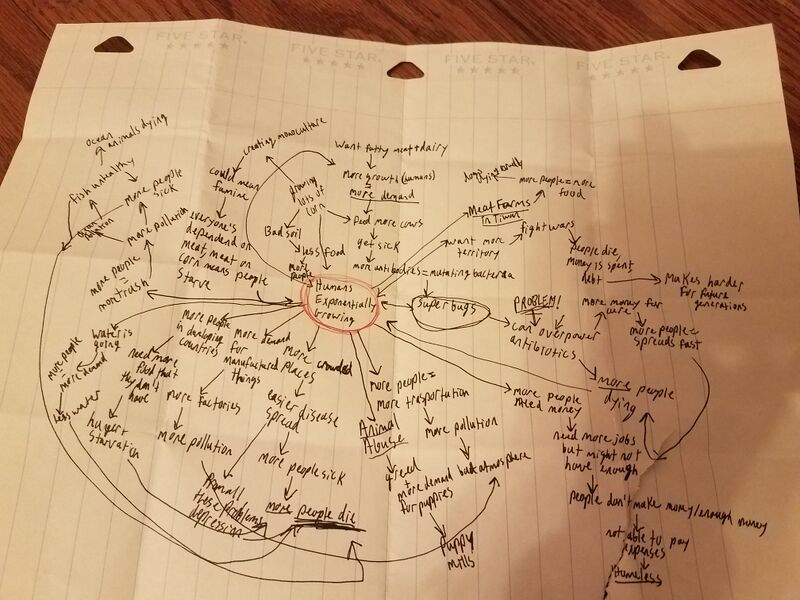 FIVE STAR.
FIVE STAR.
FIVE STAR.
FIVE STAR.
ocean
animals dying
fish unhealthy
more people
sick
ocean
pollution
more pollution
more people
=
more trash
creating monoculture
could mean
famine
everyone's
dependent on
meat, meat on
corn means people
starve
growing
lots of
corn
Bad soil
less food
more
people
Want fatty meat + dairy
more growth (humans)
=
more demand
feed more cows
get sick
more antibodies = mutating bacteria
Humans
Exponentially
Growing
Superbugs
PROBLEM!
can overpower
antibiotics
more people = more
food
Meat Farms
want more
territory
fight wars
people die,
money is spent
debt
Makes harder
for future
generations
more money for
cure
more people =
spreads fast
more people
dying
more people
need money
need more jobs
but might not
have enough
people don't make money/enough money
not able to pay
expenses
Homeless
water is
going
more people
more demand
less water
more people
in developing
countries
need more
food that
they don't
have
hunger +
starvation
more demand
for
manufactured
things
more factories
more pollution
From all
these problems
depression
more crowded
places
easier disease
spread
more people sick
more people die
Animal
Abuse
greed
+
more demand
for puppies
Puppy
Mills
more people =
more trasportation
more pollution
bad atmosphere